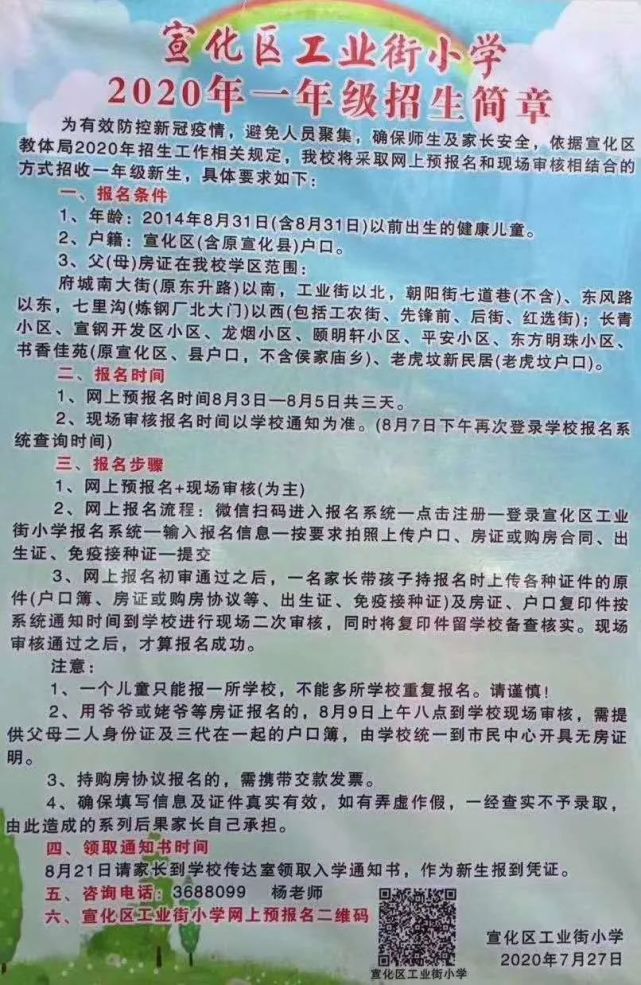 宣化区工业街小学
2020年一年级招生简章
为有效防控新冠疫情，避免人员聚集，确保师生及家长安全，依据宣化区
教体局2020年招生工作相关规定，我校将采取网上预报名和现场审核相结合的
方式招收一年级新生，具体要求如下：
一、报名条件
1、年龄：2014年8月31日(含8月31日)以前出生的健康儿童。
2、户籍：宣化区(含原宣化县)户口。
3、父(母)房证在我校学区范围：
府城南大街(原东升路)以南，工业街以北，朝阳街七道巷(不含)、东风路
以东，七里沟(炼钢厂北大门)以西(包括工农街、先锋前、后街、红选街)；长青
小区、宣钢开发区小区、龙烟小区、颐明轩小区、平安小区、东方明珠小区、
书香佳苑(原宣化区、县户口，不含侯家庙乡)、老虎坟新民居(老虎坟户口)。
二、报名时间
1、网上预报名时间8月3日—8月5日共三天。
2、现场审核报名时间以学校通知为准。(8月7日下午再次登录学校报名系
统查询时间)
三、报名步骤
1、网上预报名+现场审核(为主)
2、网上报名流程：微信扫码进入报名系统—点击注册—登录宣化区工业
街小学报名系统—输入报名信息—按要求拍照上传户口、房证或购房合同、出
生证、免疫接种证—提交
3、网上报名初审通过之后，一名家长带孩子持报名时上传各种证件的原
件(户口簿、房证或购房协议等、出生证、免疫接种证)及房证、户口复印件按
系统通知时间到学校进行现场二次审核，同时将复印件留学校备查核实。现场
审核通过之后，才算报名成功。
注意：
1、一个儿童只能报一所学校，不能多所学校重复报名。请谨慎！
2、用爷爷或姥爷等房证报名的，8月9日上午八点到学校现场审核，需提
供父母二人身份证及三代在一起的户口簿，由学校统一到市民中心开具无房证
明。
3、持购房协议报名的，需携带交款发票。
4、确保填写信息及证件真实有效，如有弄虚作假，一经查实不予录取，
由此造成的系列后果家长自己承担。
四、领取通知书时间
8月21日请家长到学校传达室领取入学通知书，作为新生报到凭证。
五、咨询电话：3688099 杨老师
六、宣化区工业街小学网上预报名二维码
宣化区工业街小学
宣化区工业街小学
2020年7月27日